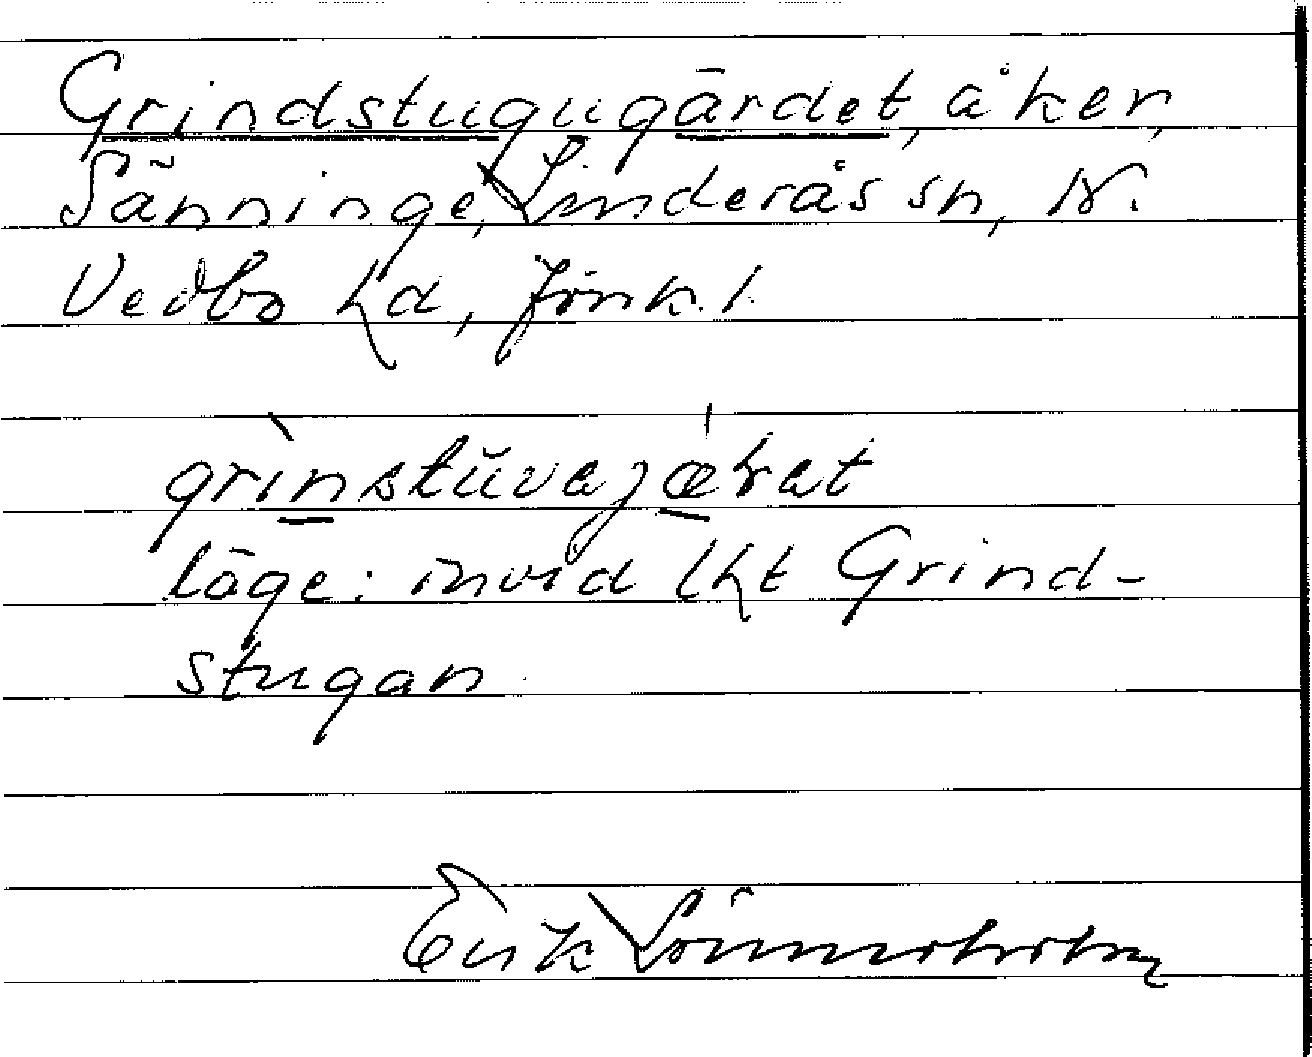 Grindstugugärdet, åker,
Sänninge, Linderås sn, N.
Vedbo hd, Jönk. l.
grinstŭvajæ̨ret
läge: invid lht Grind-
stugan
Erik